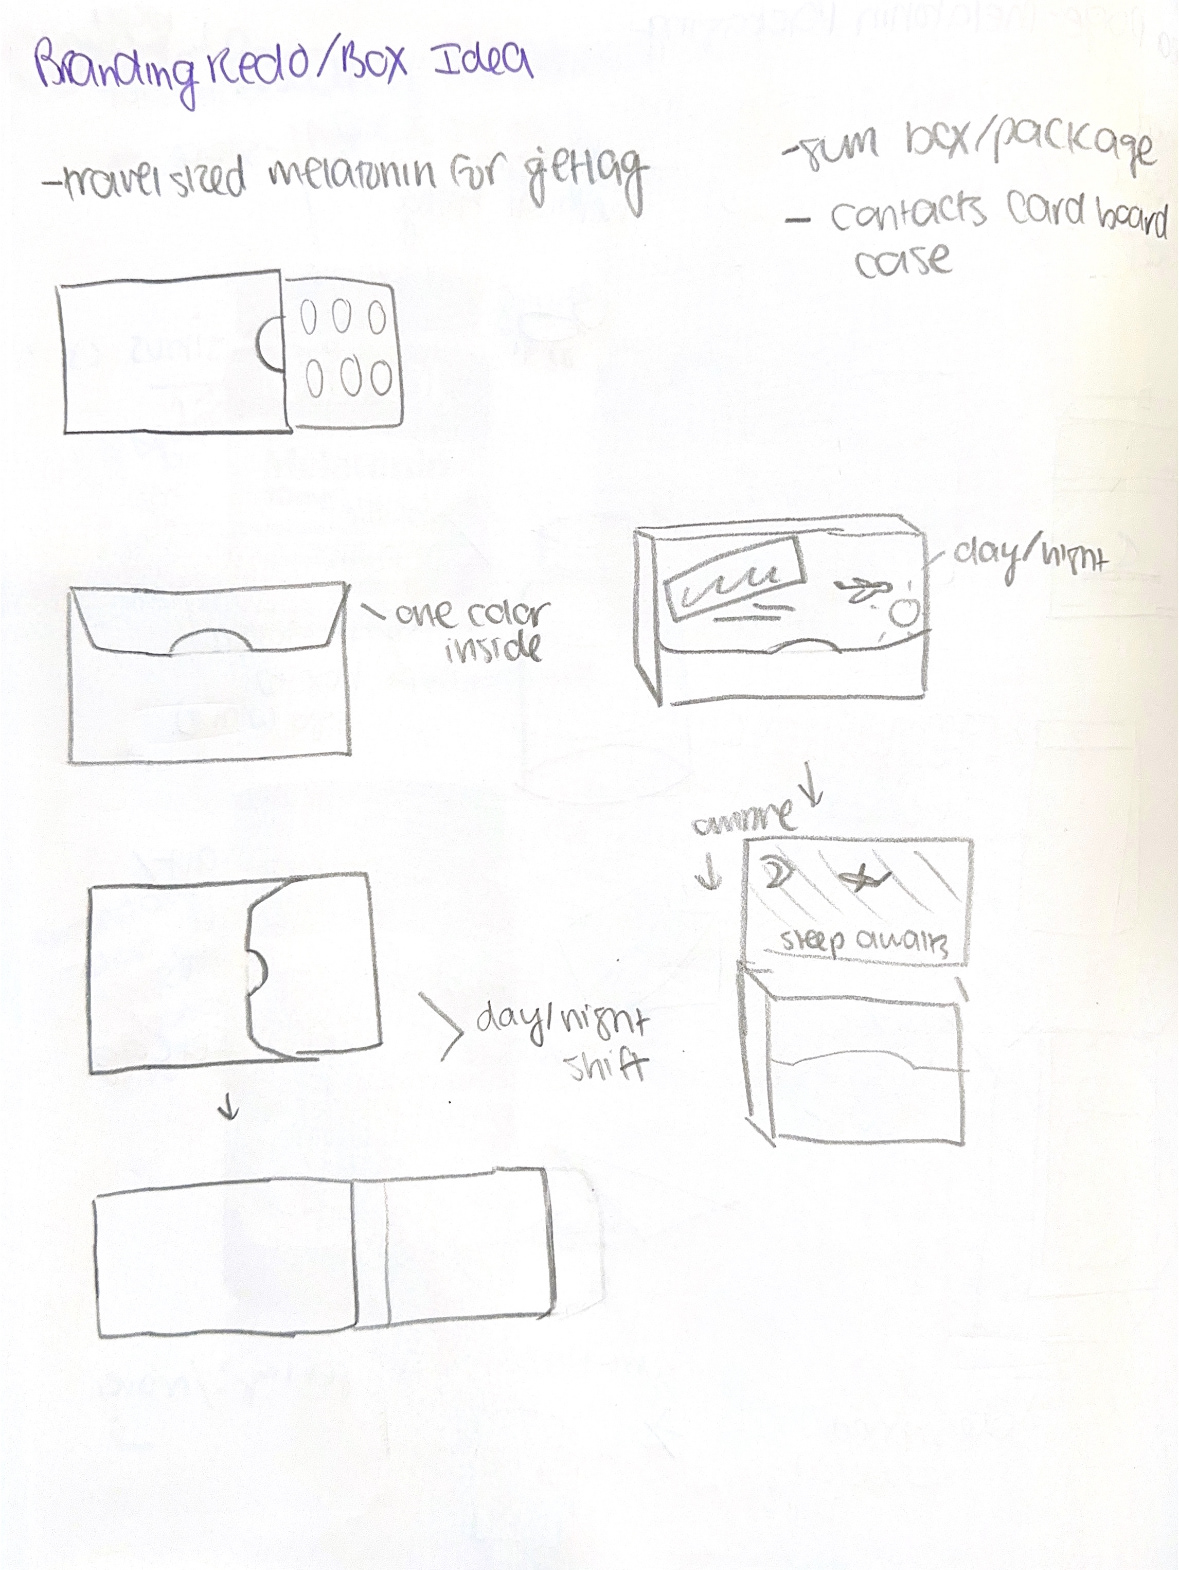 Branding Redo/Box Idea
-travel sized melatonin for jetlag
-gum box/package
- contacts cardboard
case
one color
inside
day/night
day/night
shift
sleep awaits